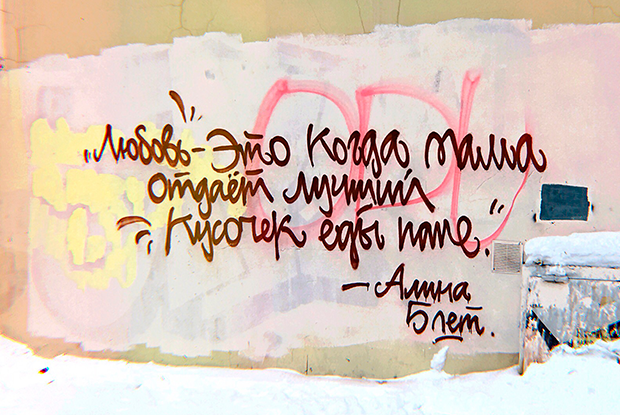 „Любовь - Это когда мама
отдаёт лучший
кусочек еды папе."
- Алина,
5 лет.